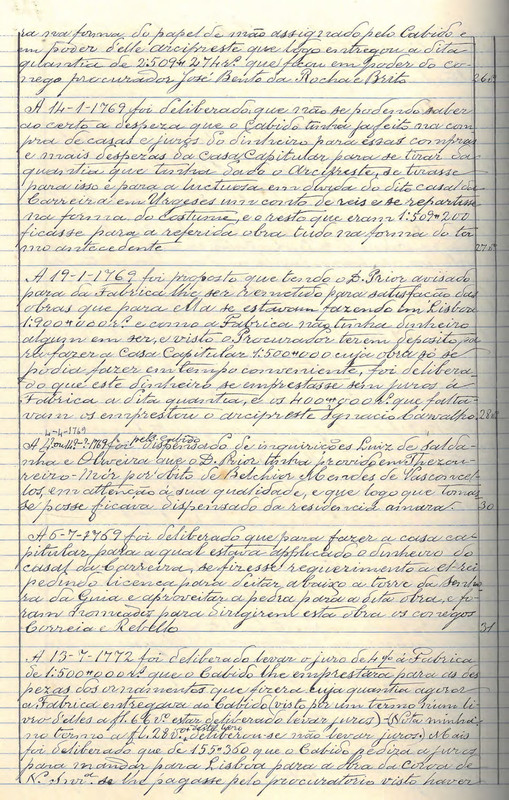 ra na forma, do papel de mão assignado pelo Cabido e
em poder delle arcipreste que logo entregou a dita
quantia de 2:509#274 rs. que ficou em poder do co-
nego procurador José Bento da Rocha e Brito 26 v.
A 14-1-1769 foi deliberado que não se podendo saber
ao certo a despeza que o Cabido tinha ja feito na com
pra de casas e juros do dinheiro para essas compras
e mais despezas da Casa Capitular para se tirar da
quantia que tinha dado o Arcipreste, se tirasse
para isso e para a luctuosa em duvida do dito casal da
Carreira em Urgeses um conto de reis e se repartisse
na forma do costume, e o resto que eram 1:509#200
ficásse para a referida obra tudo na forma do ter
mo antecedente 27 v.
A 19-1-1769 foi proposto que tendo o D. Prior avisado
para da Fabrica lhe ser remetido para satisfação das
obras que para ella se estavam fazendo em Lisboa
1:900#000 rs. e como a Fabrica não tinha dinheiro
algum em ser, e visto o Procurador ter em deposito, pa
ra fazer a Casa Capitular 1:500#000 cuja obra só se
podia fazer em tempo conveniente, foi delibera
do que este dinheiro se emprestasse sem juros á
Fabrica a dita quantia, e os 400#000 rs. que falta-
vam os emprestou o arcipreste Ignacio Carvalho. 28 v.
4-4-1769
A 4 ou 14-?-1769 foi pelo cabido dispensado de inquirições Luiz de Salda
nha e Oliveira que o D. Prior tinha provido em Thezou-
reiro-Mór por obito de Belchior Mendes de Vasconcel-
los, em attenção á sua qualidade, e que logo que tomas
se posse ficava dispensado da residencia amara. 30
A 5-7-1769 foi deliberado que para fazer a casa ca-
pitular, para a qual estava applicado o dinheiro do
casal da Carreira, se fizesse requerimento a el-rei
pedindo licença para deitar abaixo a torre da Senho
ra da Guia e aproveitar a pedra para a dita obra, e fo-
ram nomeados para dirigirem esta obra os conegos
Correia e Rebello 31
A 13-7-1772 foi deliberado levar o juro de 4% á Fabrica
de 1:500#000 rs. que o Cabido lhe emprestára para as des
pezas dos ornamentos que fizera cuja quantia agora
a Fabrica entregava ao Cabido (visto por um termo num li-
vro delles a fl. 66 v. estar deliberado levar juros) (Nota minha:
no termo a fl. 28 v. deliberou-se não levar juros) Mais
foi deliberado que de 155#360 que o Cabido pediza a juros
para mandar para Lisboa para a obra da coroa de
N. Snr.ª se lhe pagasse pelo procuratorio visto haver